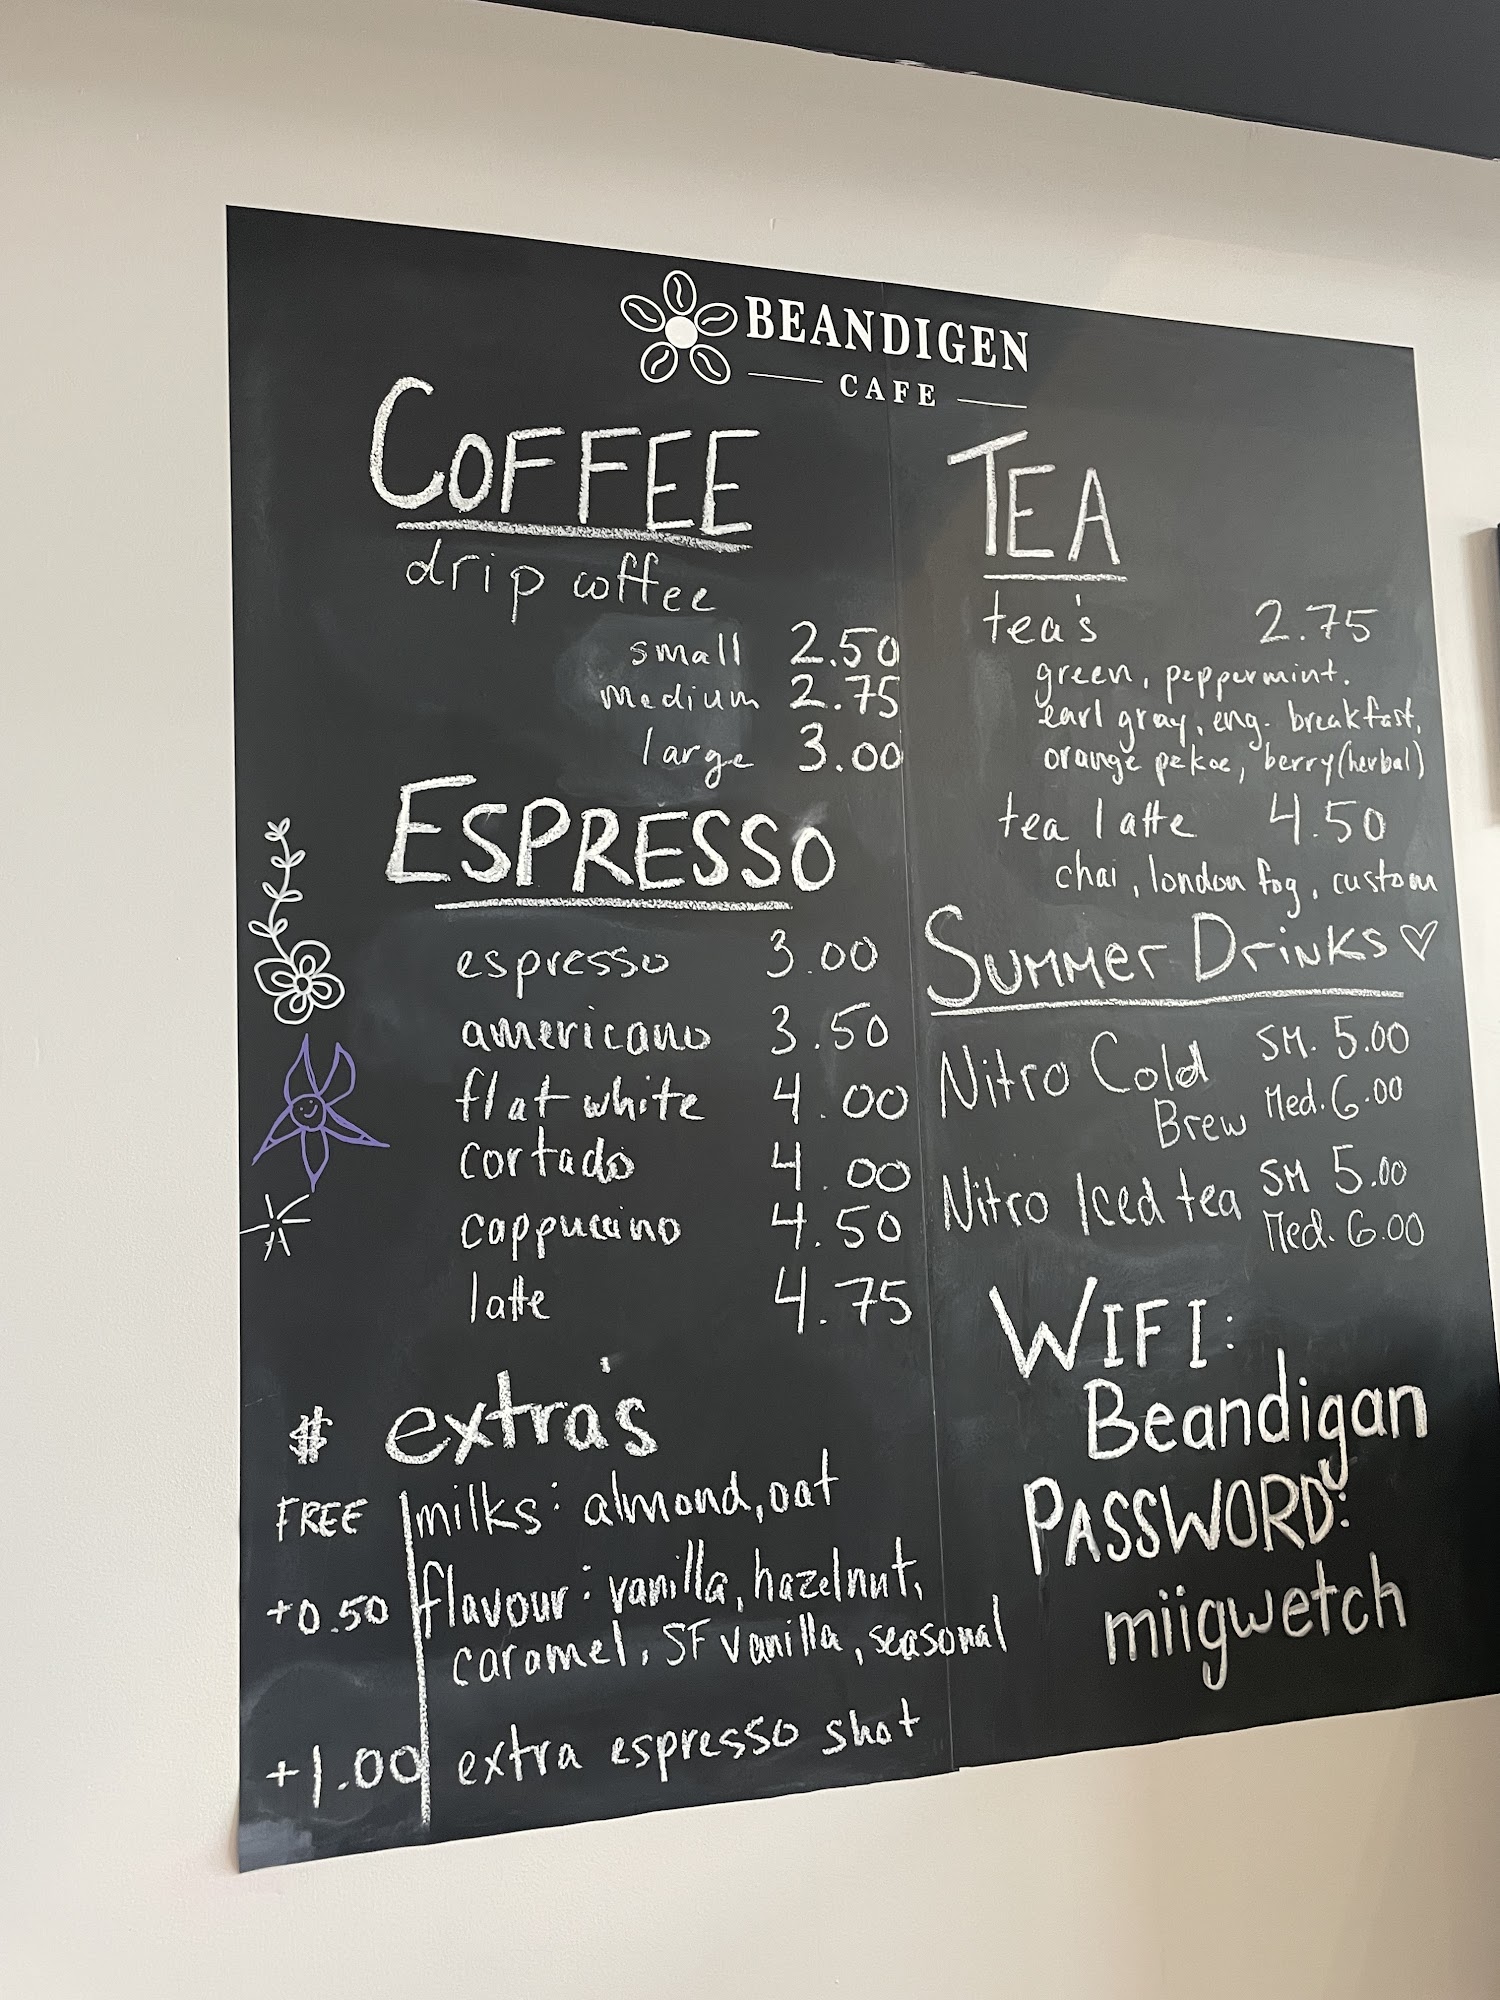 BEANDIGEN
CAFE
COFFEE
drip coffee
small 2.50
medium 2.75
large 3.00
ESPRESSO
espresso 3.00
americano 3.50
flat white 4.00
cortado 4.00
cappuccino 4.50
latte 4.75
$ extra's
FREE milks: almond, oat
+0.50 flavour: vanilla, hazelnut,
caramel, SF vanilla, seasonal
+1.00 extra espresso shot
TEA
tea's 2.75
green, peppermint.
earl gray, eng. breakfast,
orange pekoe, berry (herbal)
tea latte 4.50
chai, london fog, custom
SUMMER DRINKS ♡
Nitro Cold SM. 5.00
Brew Med. 6.00
Nitro Iced tea SM 5.00
Med. 6.00
WIFI:
Beandigan
PASSWORD:
miigwetch